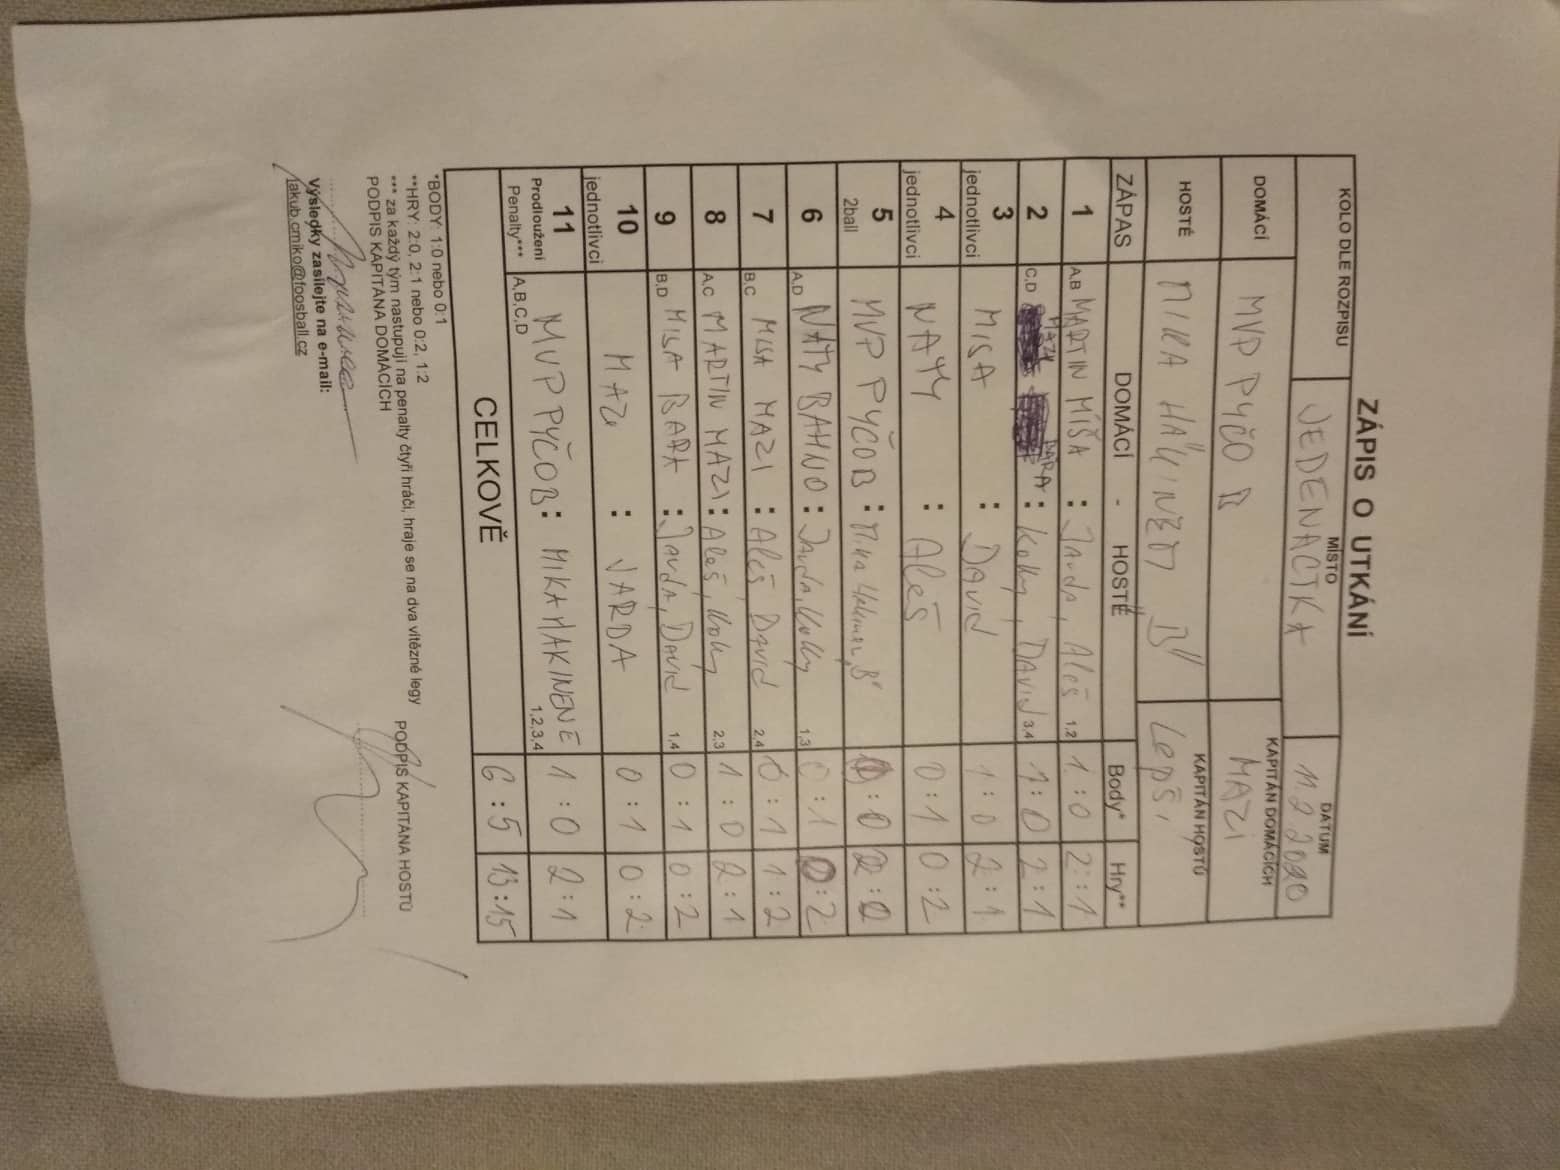 ZÁPIS O UTKÁNÍ
KOLO DLE ROZPISU MÍSTO JEDENÁCTKA DATUM 11.2.2020
DOMÁCÍ MVP PYČO B KAPITÁN DOMÁCÍCH MAZI
HOSTÉ MIKA HÄKINEN B" KAPITÁN HOSTŮ Lepš,
ZÁPAS DOMÁCÍ - HOSTÉ Body* Hry**
1 A,B MARTIN MÍŠA : Jarda, Aleš 1,2 1:0 2:1
2 C,D MAZI BÁRA : Kolly, DAVID 3,4 1:0 2:1
3 jednotlivci MISA : David 1:0 2:1
4 jednotlivci NATY : Aleš 0:1 0:2
5 2ball MVP PYČO B : Mika "B" :0
6 A,D NATY BAHNO : Jarda, Kolly 1,3 0:1 0:2
7 B,C MISA MAZI : Aleš, David 2,4 0:1 1:2
8 A,C MARTIN MAZI : Aleš, Kolly 2,3 1:0 2:1
9 B,D MISA BARA : Jarda, David 1,4 0:1 0:2
10 jednotlivci MAZI : JARDA 0:1 0:2
11 Prodloužení Penalty*** A,B,C,D MVP PYČO B : MIKA HAKINEN 1,2,3,4 1:0 2:1
CELKOVĚ 6:5 13:15
*BODY: 1:0 nebo 0:1
**HRY: 2:0, 2:1 nebo 0:2, 1:2
*** za každý tým nastupují na penalty čtyři hráči, hraje se na dva vítězné legy
PODPIS KAPITÁNA DOMÁCÍCH PODPIS KAPITÁNA HOSTŮ
Výsledky zasílejte na e-mail:
jakub.cmiko@foosball.cz